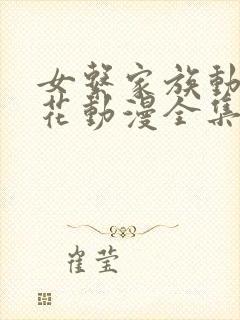 女系家族動
花動漫全集
崔莹